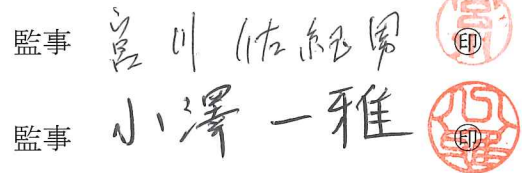 監事 宮川佐紀男 ㊞
監事 小澤一雅 ㊞